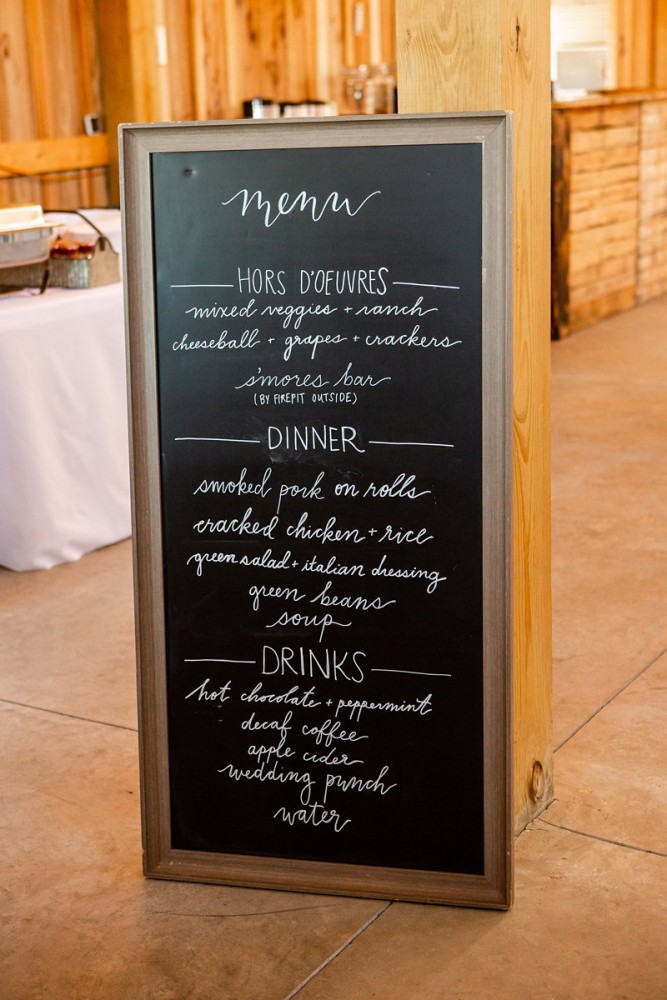 menu
HORS D'OEUVRES
mixed veggies + ranch
cheeseball + grapes + crackers
s'mores bar
(BY FIREPIT OUTSIDE)
DINNER
smoked pork on rolls
cracked chicken + rice
green salad + italian dressing
green beans
soup
DRINKS
hot chocolate + peppermint
decaf coffee
apple cider
wedding punch
water